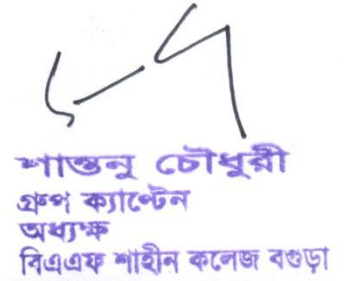 শান্তনু চৌধুরী
গ্রুপ ক্যাপ্টেন
অধ্যক্ষ
বিএএফ শাহীন কলেজ বগুড়া